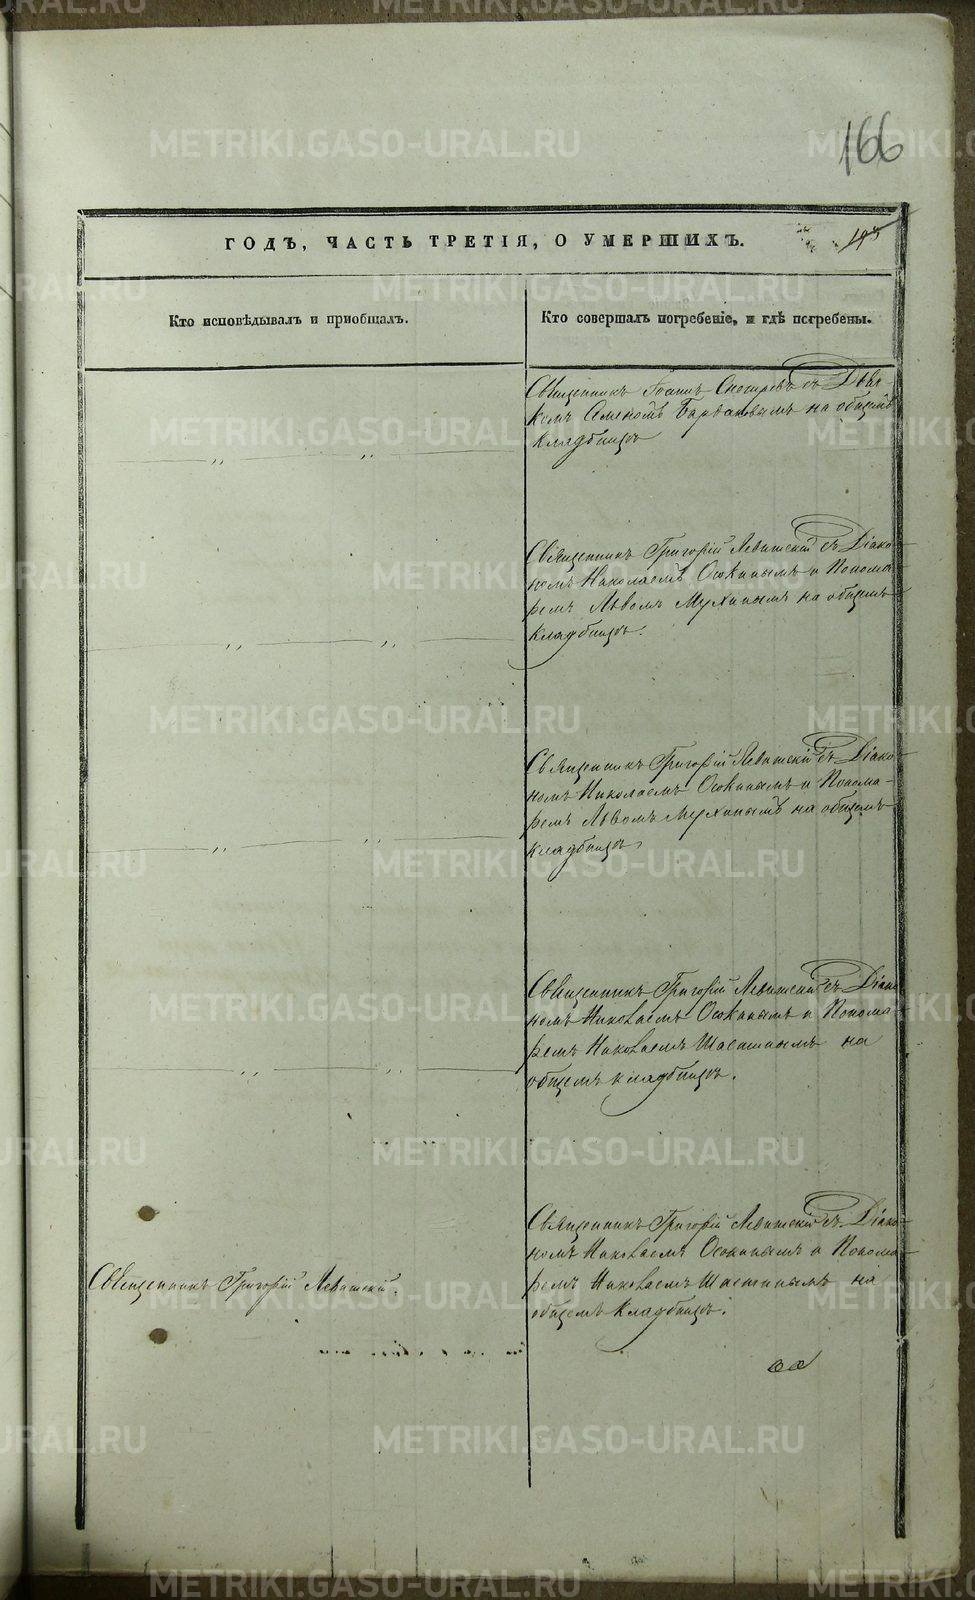 166
ГОДЪ, ЧАСТЬ ТРЕТІЯ, О УМЕРШИХЪ.
Кто исповѣдывалъ и пріобщалъ.
Кто совершалъ погребеніе, и гдѣ погребены.
Священникъ Іоаннъ съ Дьяч-
комъ на общемъ
кладбищѣ
Священникъ Григорій Левитскій съ Діако-
номъ Николаемъ Осокинымъ и Понома-
ремъ Львомъ Мухинымъ на общемъ
кладбищѣ.
Священникъ Григорій Левитскій съ Діако-
номъ Николаемъ Осокинымъ и Понома-
ремъ Львомъ Мухинымъ на общемъ
кладбищѣ.
Священникъ Григорій Левитскій съ Діако
номъ Николаемъ Осокинымъ и Понома-
ремъ Николаемъ на
общемъ кладбищѣ.
Священникъ Григорій Левитскій съ Діако-
номъ Николаемъ Осокинымъ и Понома-
ремъ Николаемъ на
общемъ кладбищѣ.
Священникъ Григорій Левитскій.
METRIKI.GASO-URAL.RU